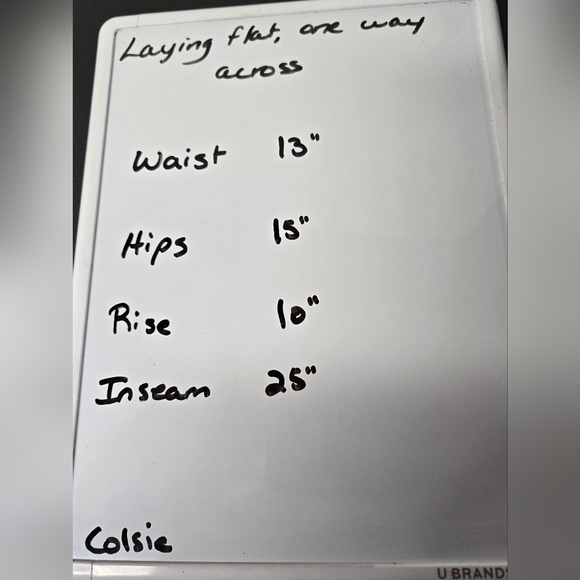 Laying flat, one way
across
Waist 13"
Hips 15"
Rise 10"
Inseam 25"
Colsie
U BRANDS